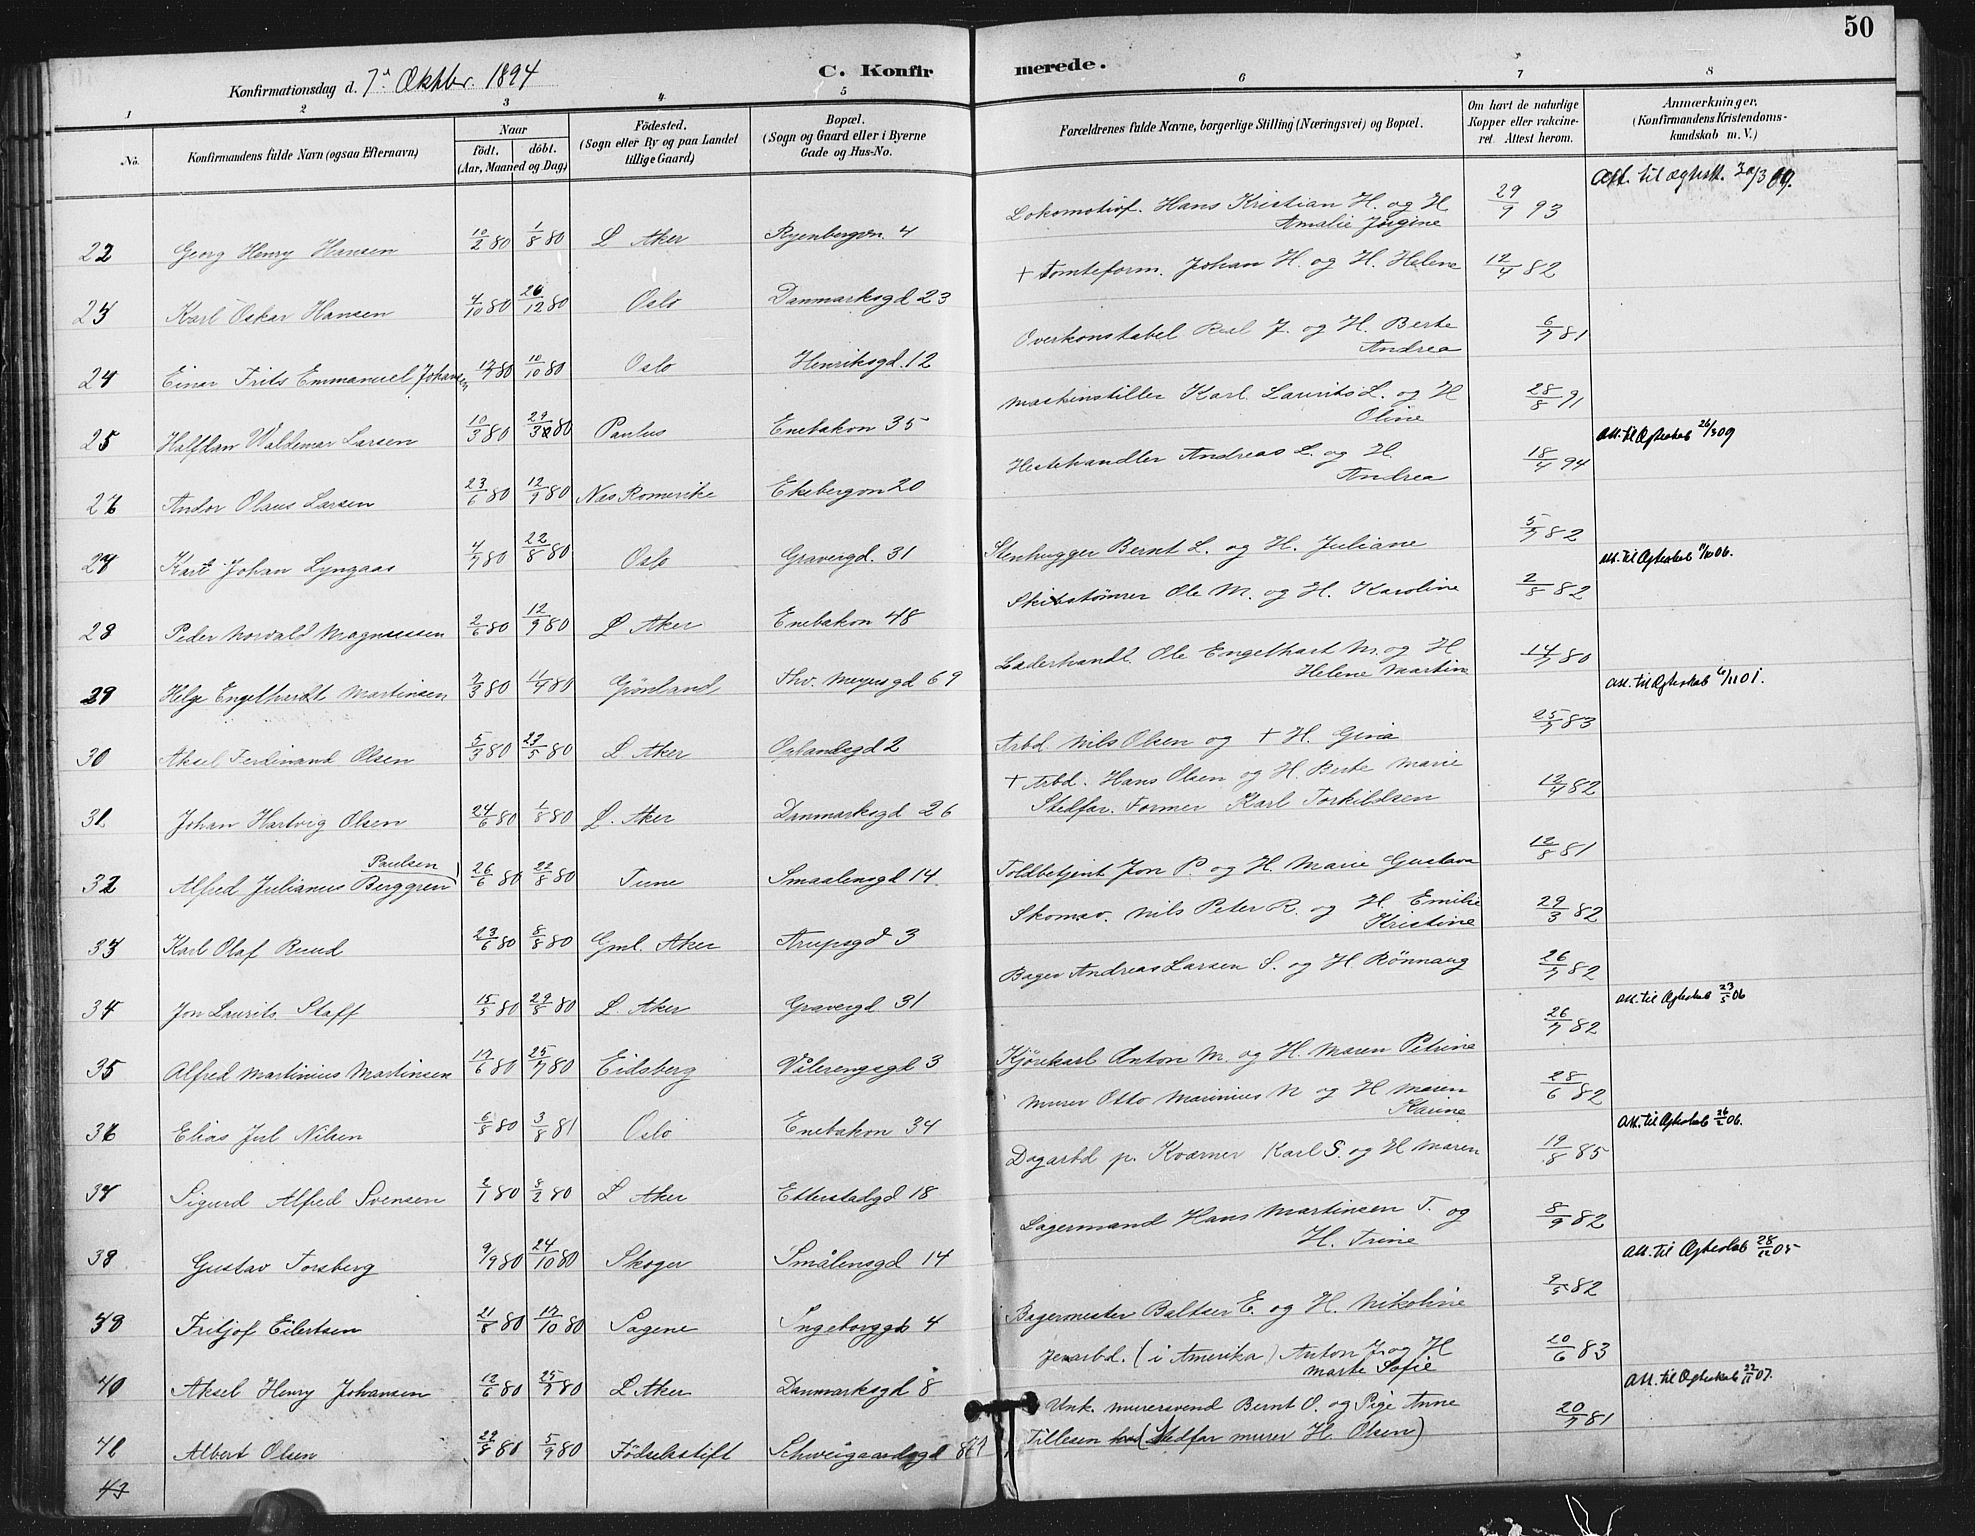 50
Konfirmationsdag d. 7de Oktbr. 1894
C. Konfirmerede.
1 2 3 4 5 6 7 8
No.
Konfirmandens fulde Navn (ogsaa Efternavn)
Naar
födt. döbt.
(Aar, Maaned og Dag)
Födested.
(Sogn eller By og paa Landet
tillige Gaard)
Bopæl.
(Sogn og Gaard eller i Byerne
Gade og Hus-No.
Forældrenes fulde Navne, borgerlige Stilling (Næringsvei) og Bopæl.
Om havt de naturlige
Kopper eller vakcine-
ret. Attest herom.
Anmærkninger.
(Konfirmandens Kristendoms-
kundskab m. V.)
22 Georg Henry Hansen 10/2 80 1/8 80 L Aker Ryenbergvn. 4 Lokomotivf. Hans Kristian H. og H Amalie Jørgine 29/9 93 Att. til ægtesk.
23 Karl Oskar Hansen 4/10 80 26/12 80 Oslo Danmarksgd 23 + Tomteform. Johan H. og H. Helene 12/4 82
24 Einar Frits Emmanuel Johansen 17/7 80 10/10 80 Oslo Henriksgd. 12 Overkonstabel J. og H. Berte Andrea 6/7 81
25 Halfdan Waldemar Larsen 10/3 80 Paulus Enebakvn 35 Maskinstiller Karl Laurits L. og H Oline 28/8 91
26 Andor Olaus Larsen 23/6 80 12/9 80 Nes Romerike Ekebergvn 20 Hestehandler Andreas L. og H. Andrea 18/4 94 Att. til Ægteskab 26/3 09
27 Karl Johan Lyngaas 4/7 80 22/8 80 Oslo Gravergd. 31 Stenhugger Bernt L. og H. Juliane 5/7 82
28 Peder Norvald Magnussen 2/6 80 12/9 80 L Aker Enebakvn 48 Skibstømrer Ole M. og H. Karoline 2/8 82 Att. til Ægteskab
29 Helge Engelhardt Martinsen 2/3 80 4/4 80 Grønland Thv. Meyersgd 69 Læderhandl. Ole Engelhart M. og H Helene Martine 14/7 80
30 Aksel Ferdinand Olsen 5/3 80 23/5 80 L Aker Oplandsgd 2 Arbd. Nils Olsen og + H. Gina 25/7 83 Att. til Ægteskab 6/11 01.
31 Johan Hartvig Olsen 24/6 80 1/8 80 L. Aker Danmarksgd 26 + Arbd. Hans Olsen og H. Berte Marie
Stedfar. Former Karl Torkildsen 12/4 82
32 Alfred Julianus Berggren Paulsen 26/6 80 22/8 80 Tune Smaalensgd 14. Toldbetjent Jon P. og H. Marie Gustava 12/8 81
33 Karl Olaf Ruud 23/6 80 8/8 80 Gml. Aker Arupsgd 3 Skomav. Nils Peter R. og H. Emilie Kristine 29/3 82
34 Jon Laurits Staff 15/5 80 29/8 80 L. Aker Gravergd 31 Bager Andreas Larsen S. og H. Rönnaug 26/7 82
35 Alfred Martinius Martinsen 17/6 80 25/7 80 Eidsberg Vålerengsgd 3 Kjørekarl Anton M. og H. Maren Petrine 26/7 82 Att. til Ægteskab 23/5 06
36 Elias Jul Nilsen 6/8 80 3/8 81 Oslo Enebakvn 34 Murer Otto Marinius N og H Maren Karine 28/6 82
37 Sigurd Alfred Svensen 2/1 80 8/2 80 L Aker Etterstadgd 18 Dagarbd p. Kværner Karl S. og H Maren 19/8 85 Att. til Ægteskab 26/2 06.
38 Gustav Torsberg 9/9 80 24/10 80 Skoger Smålensgd 14 Lagermand Hans Martinsen T. og H. Trine 8/9 82
39 Fritjof Eilertsen 21/8 80 17/10 80 Sagene Ingeborggd 4 Bagermester Baltser E. og H. Nikoline 9/5 82 Att. til Ægteskab 28/11 05
40 Aksel Henry Johansen 12/6 80 25/7 80 L Aker Danmarksgd 8 Jernarbd. (i Amerika) Anton J. og H Marte Sofie 20/6 83
41 Albert Olsen 22/8 80 5/9 80 Födselsstift Schweigaardsgd Unk. murersvend Bernt O. og Pige Anne
Tillesen (Stedfar murer H Olsen) 20/7 81 Att. til Ægteskab 22/11 07.
43